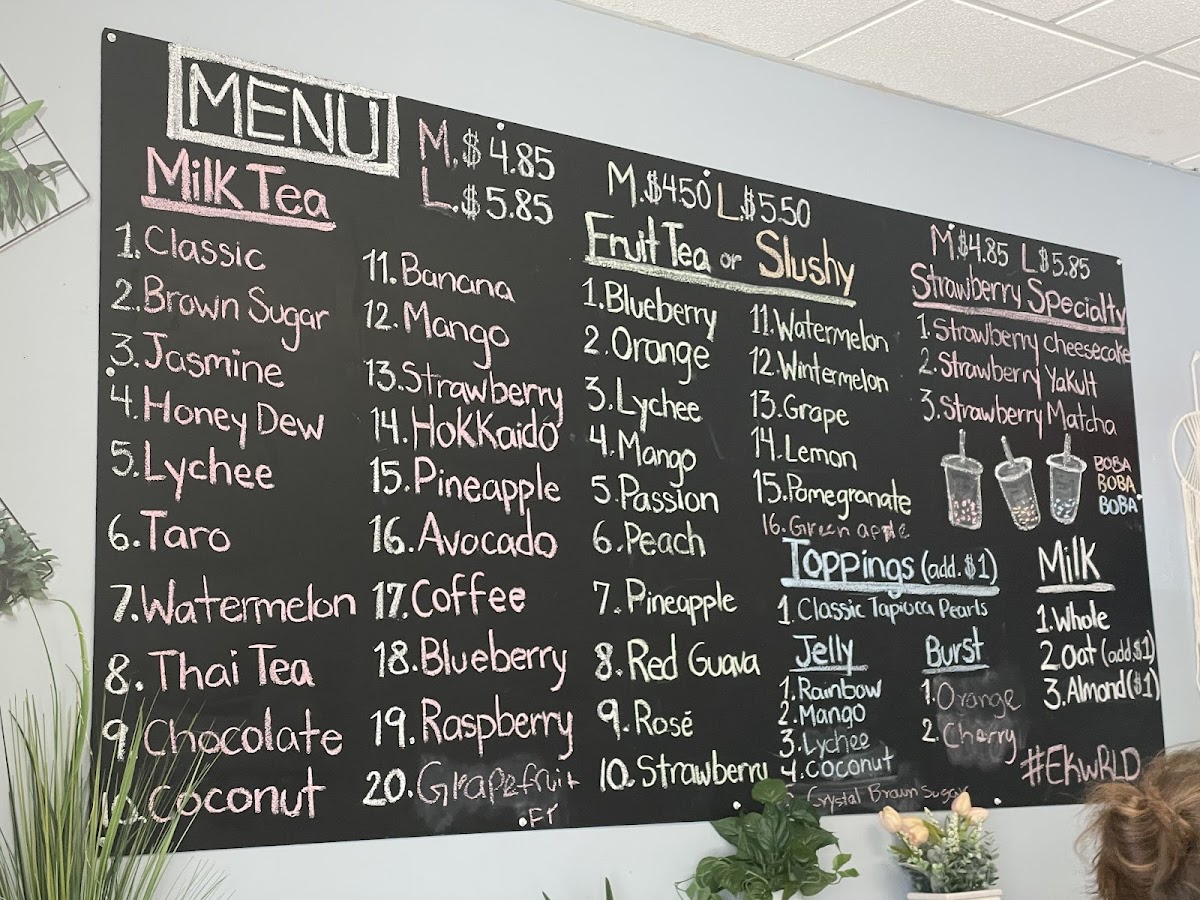 MENU
M. $4.85
L. $5.85
Milk Tea
1. Classic
2. Brown Sugar
3. Jasmine
4. Honey Dew
5. Lychee
6. Taro
7. Watermelon
8. Thai Tea
9. Chocolate
10. Coconut
11. Banana
12. Mango
13. Strawberry
14. Hokkaido
15. Pineapple
16. Avocado
17. Coffee
18. Blueberry
19. Raspberry
20. Grapefruit
M. $4.50 L. $5.50
Fruit Tea or Slushy
1. Blueberry
2. Orange
3. Lychee
4. Mango
5. Passion
6. Peach
7. Pineapple
8. Red Guava
9. Rosé
10. Strawberry
11. Watermelon
12. Wintermelon
13. Grape
14. Lemon
15. Pomegranate
16. Green apple
M $4.85 L $5.85
Strawberry Specialty
1. Strawberry Cheesecake
2. Strawberry Yakult
3. Strawberry Matcha
BOBA
BOBA
BOBA
Toppings (add. $1)
1. Classic Tapiocca Pearls
Jelly
1. Rainbow
2. Mango
3. Lychee
4. Coconut
5. Crystal Brown Sugar
Burst
1. Orange
2. Cherry
Milk
1. Whole
2. Oat (add.$1)
3. Almond ($1)
#EKWRLD